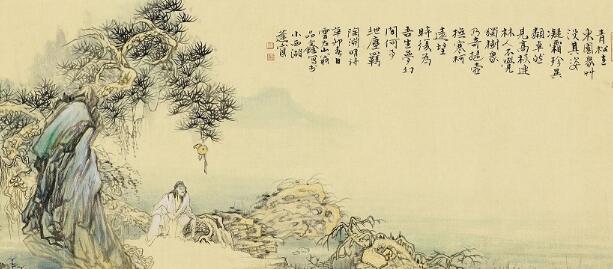 青松在
東園衆草
沒其姿
凝霜殄異
類卓然
見高枝連
林人不覺
獨樹衆
乃奇提壺
寒柯
遠望
時復為
吾生夢幻
間何事
紲塵羈
陶淵明詩
辛卯春日
雲居山
品鑫寫於
小西湖
蓮窗